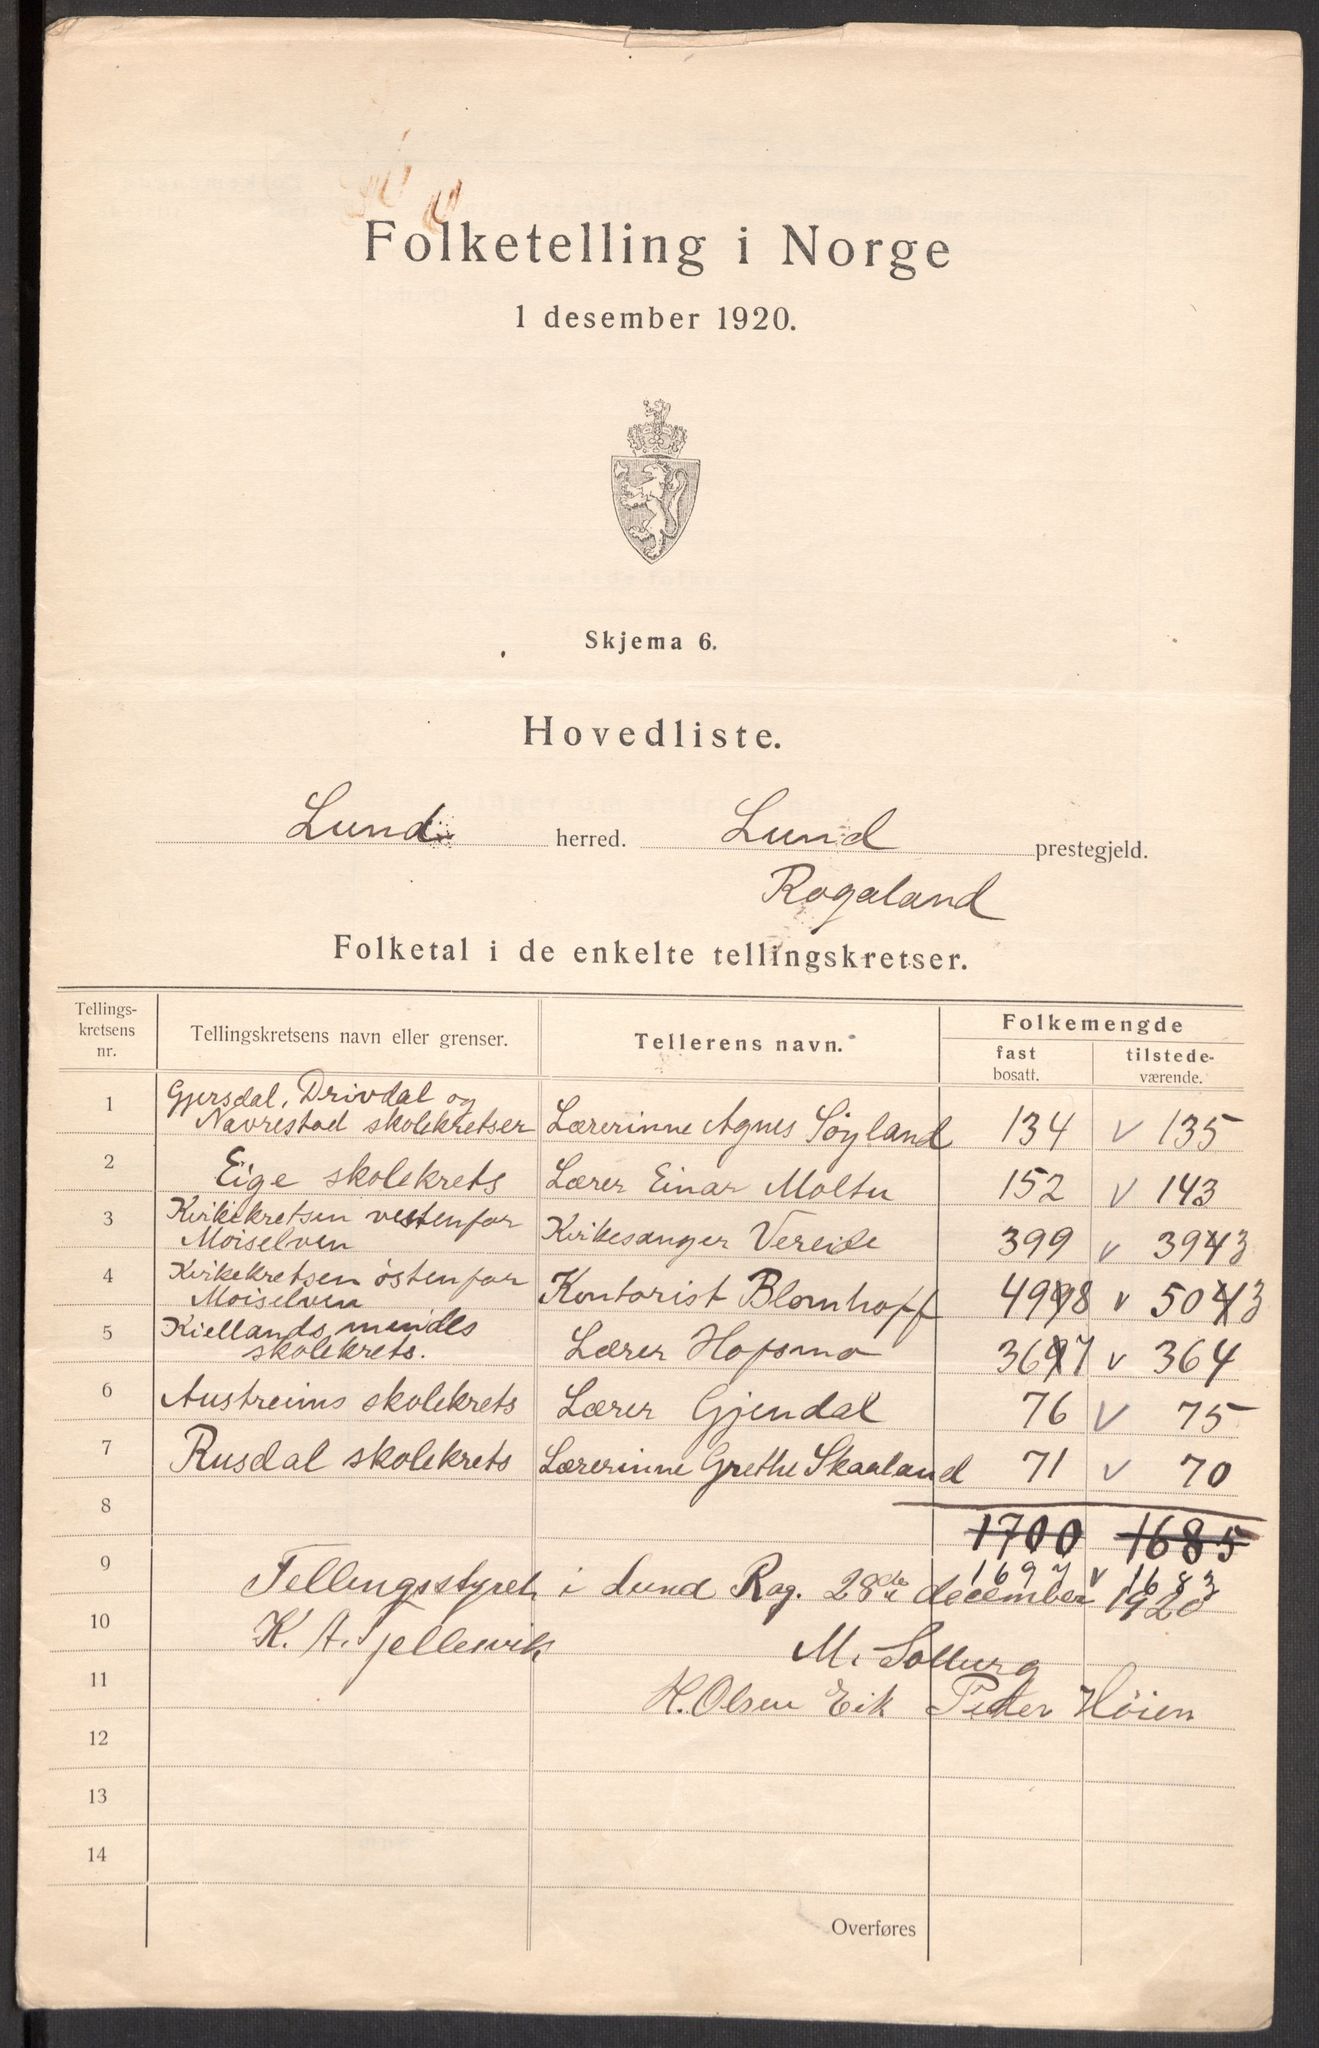 Folketelling i Norge
1 desember 1920.
Skjema 6.
Hovedliste.
Lund herred. Lund prestegjeld.
Rogaland
Folketal i de enkelte tellingskretser.
Tellings-
kretsens
nr.
Tellingskretsens navn eller grenser.
Tellerens navn.
Folkemengde
fast
bosatt.
tilstede-
værende.
1 Gjersdal, Drivdal og
Navrestad skolekretser Lærerinne Agnes Søyland 134 v 135
2 Eige skolekrets Lærer Einar Moltu 152 v 143
3 Kirkekretsen vestenfor
Moiselven Kirkesanger Vereide 399 v 3943
4 Kirkekretsen østenfor
Moiselven Kontorist Blomhoff 4998 v 5043
5 Kiellands mindes
skolekrets. Lærer Hofsmo 3697 v 364
6 Austreims skolekrets Lærer Gjendal 76 v 75
7 Rusdal skolekrets Lærerinne Grethe Skaaland 71 v 70
8 1700 1685
1697 v 1683
9 Tellingsstyret i Lund Rog. 28de december 1920
10 K. A. Tjellesvik M. Solberg
11 H. Olsen Eik Peder Høien
12
13
14
Overføres